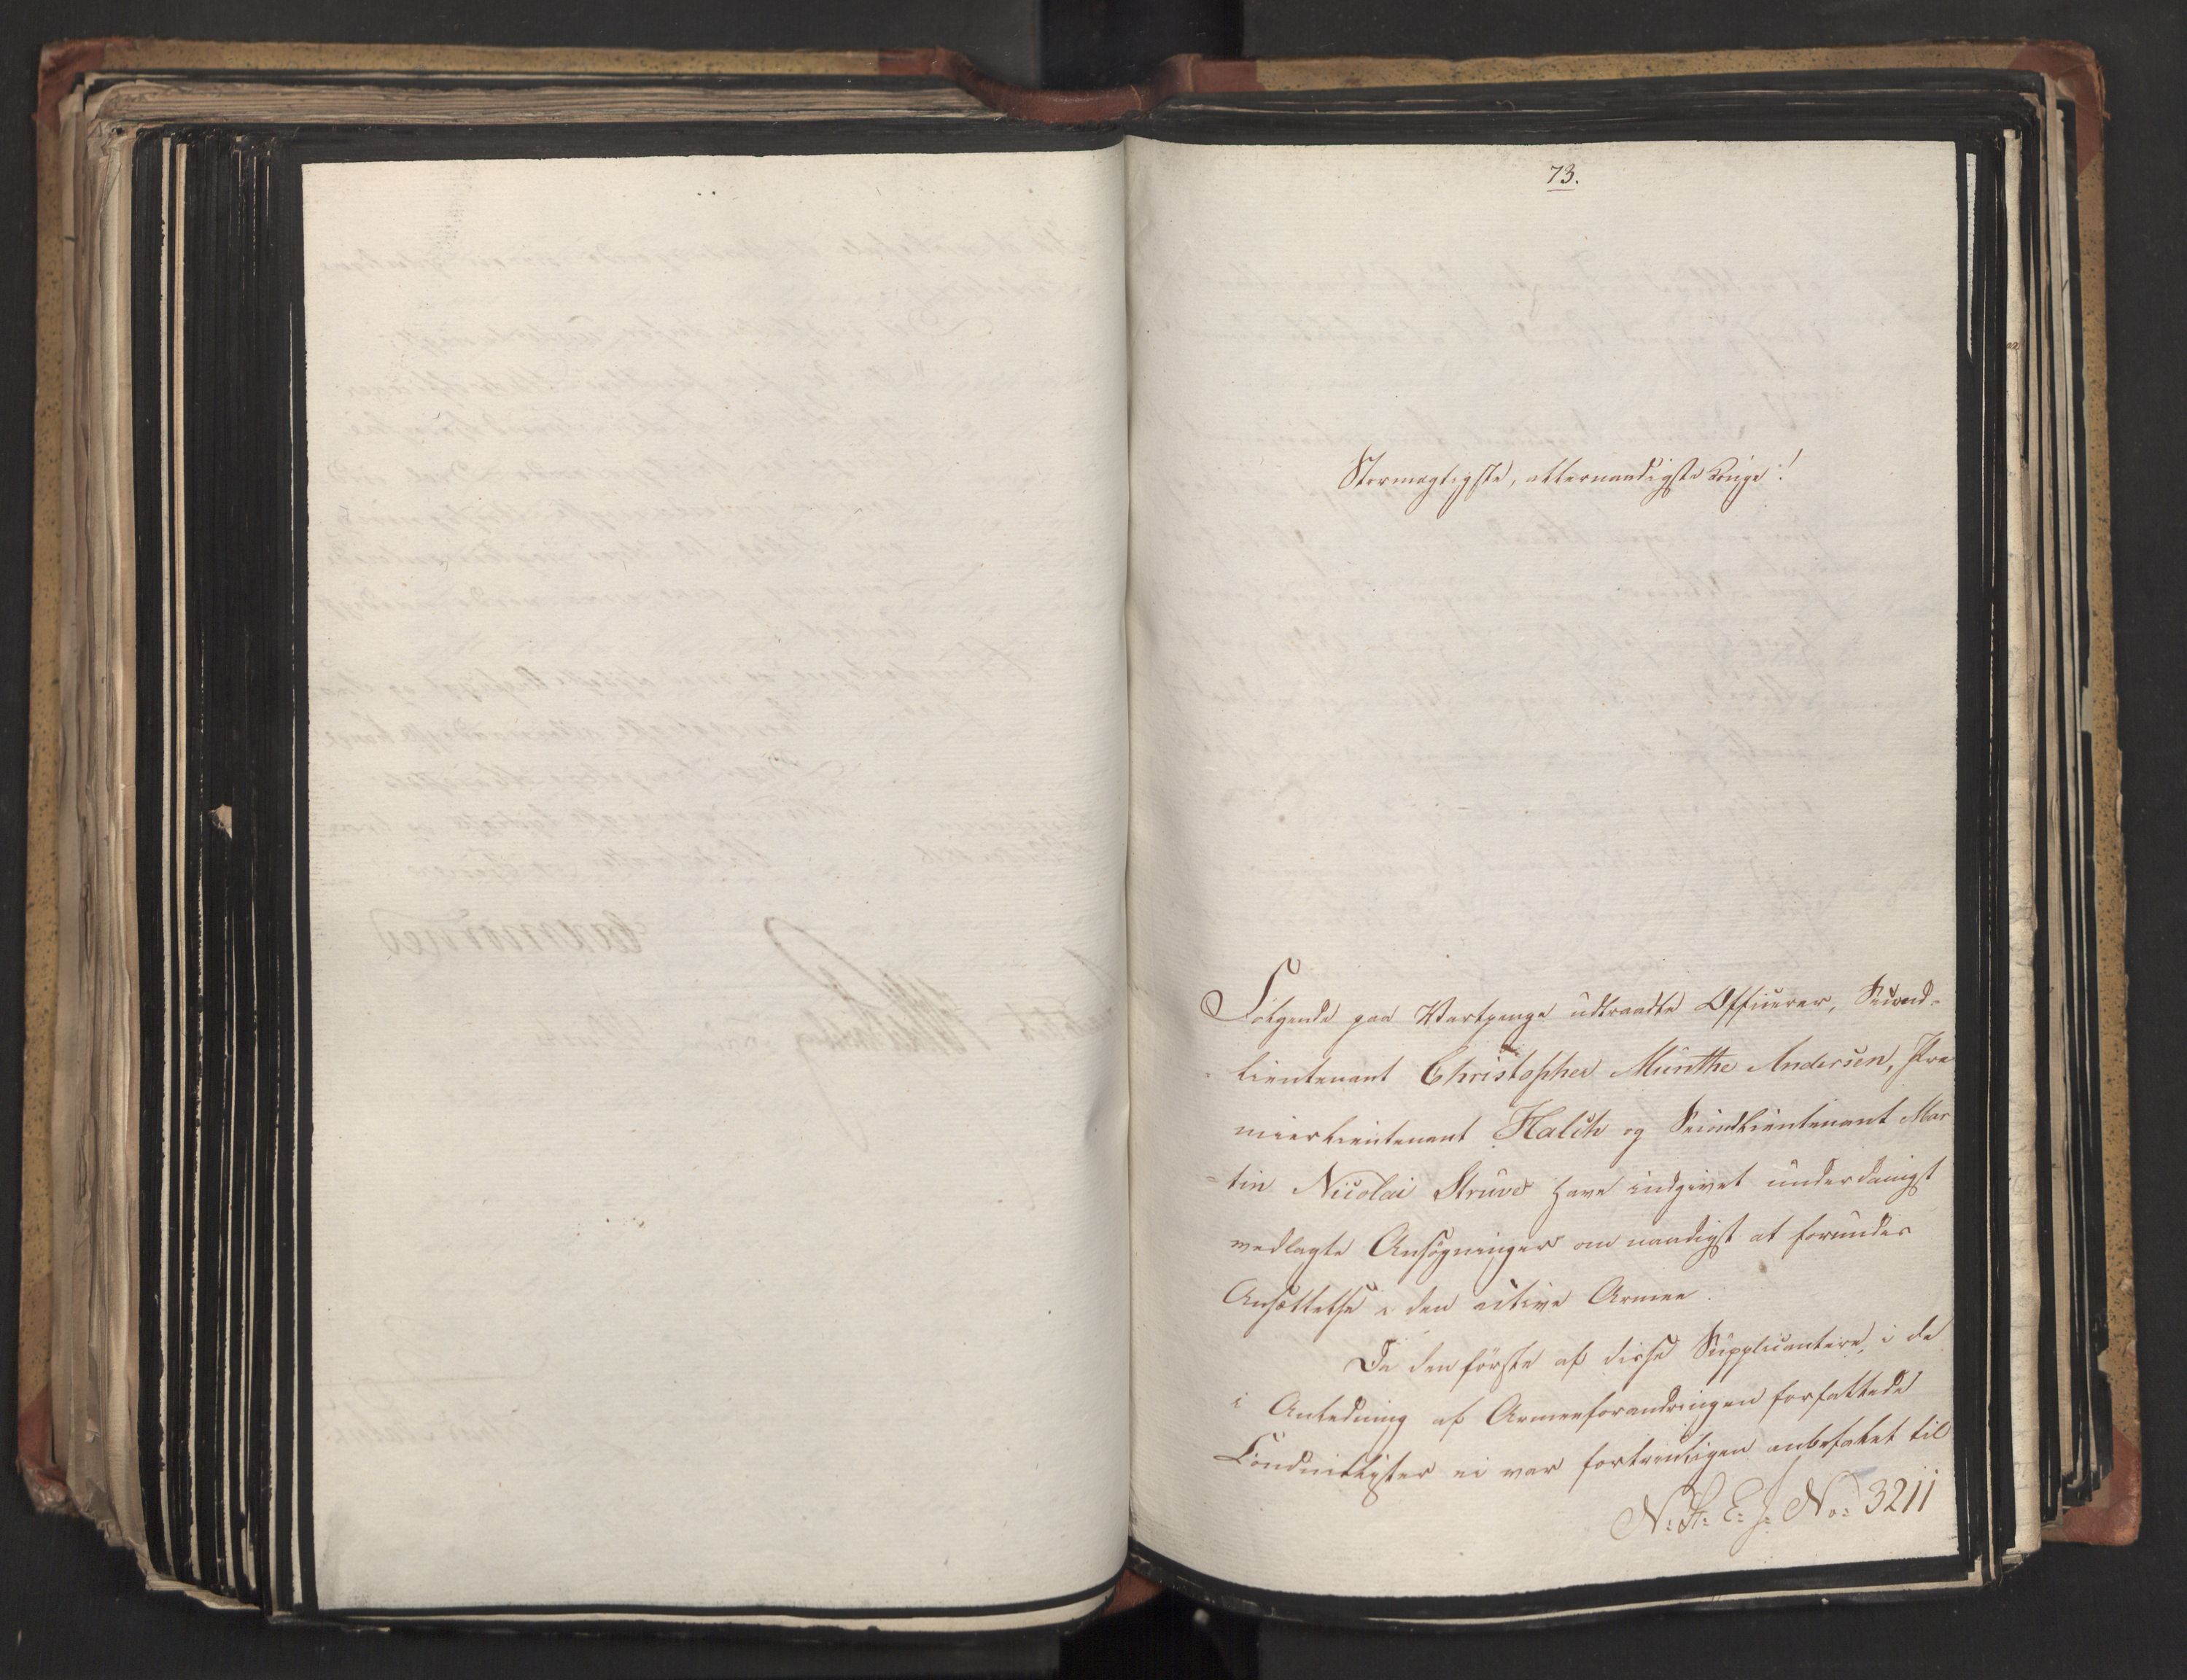 73.
Stormægtigste, allernaadigste Konge!
Følgende paa Vartpenge udtraadte Officerer, Second-
lieutenant Christopher Munthe Andersen, Pre
mierlieutenant Halch og Secondlieutenant Mar
-tin Nicolai Struve have indgivet underdanigst
vedlagte Ansøgninger om naadigst at forundes
Ansættelse i den active Armee.
Da den første af disse Supplicantere, i de
i Anledning af Armeeforandringen forfattede
Conduitelister ei var fortrinligen anbefalet til
N: St: E: J: No: 3211